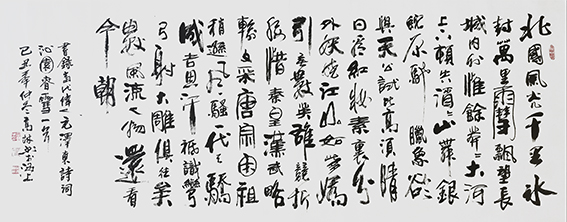 北國風光千里冰
封萬里雪飄望長
城内外惟餘莽莽大河
上下頓失滔滔山舞銀
蛇原馳臘象欲
與天公試比高須晴
日看紅妝素裹分
外妖嬈江山如此多嬌
引無數英雄競折
腰惜秦皇漢武略
輸文采唐宗宋祖
稍遜風騷一代天驕
成吉思汗祇識彎
弓射大雕俱往矣
數風流人物還看
今朝
書錄當代偉人毛澤東詩詞
沁園春雪一首
己丑年仲冬高